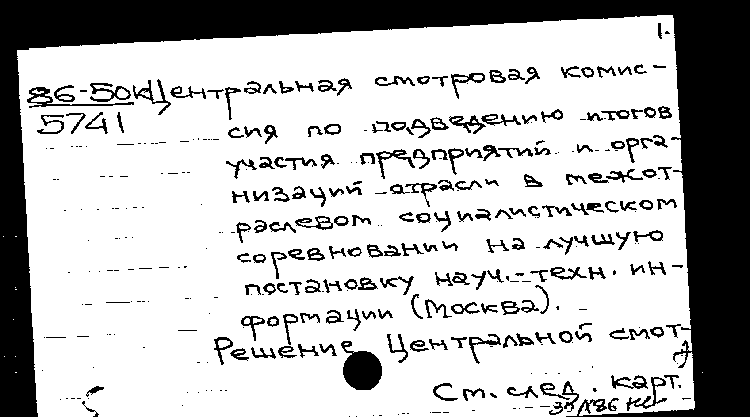 1.
86-50к Центральная смотровая комис-
5741
сия по подведению итогов
участия предприятий и орга-
низаций отрасли в межот-
раслевом социалистическом
соревновании на лучшую
постановку науч.-техн. ин-
формации (Москва).
Решение Центральной смот-
См. след. карт.